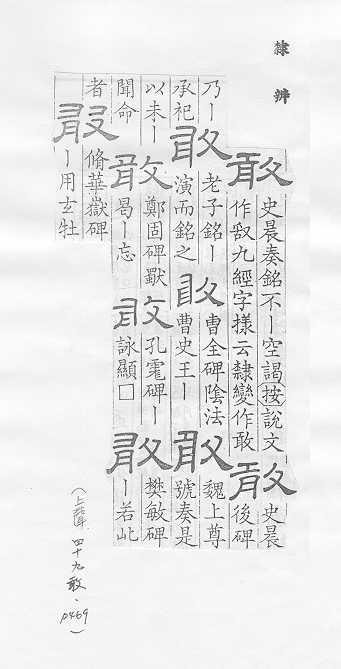 隸辨
敢
史晨奏銘不ー空謁按說文
作九經字樣云隸變作敢
敢
史晨
後碑
乃ー
承祀
敢
老子銘ー
演而銘之
敢
曹全碑陰法
曹史王ー
敢
魏上尊
號奏是
以未ー
聞命
敢
鄭固碑獸
曷ー忘
敢
孔碑ー
詠顯□
敢
樊敏碑
ー若此
者
敢
脩華嶽碑
ー用玄牡
(上聲、四十九敢、P469)